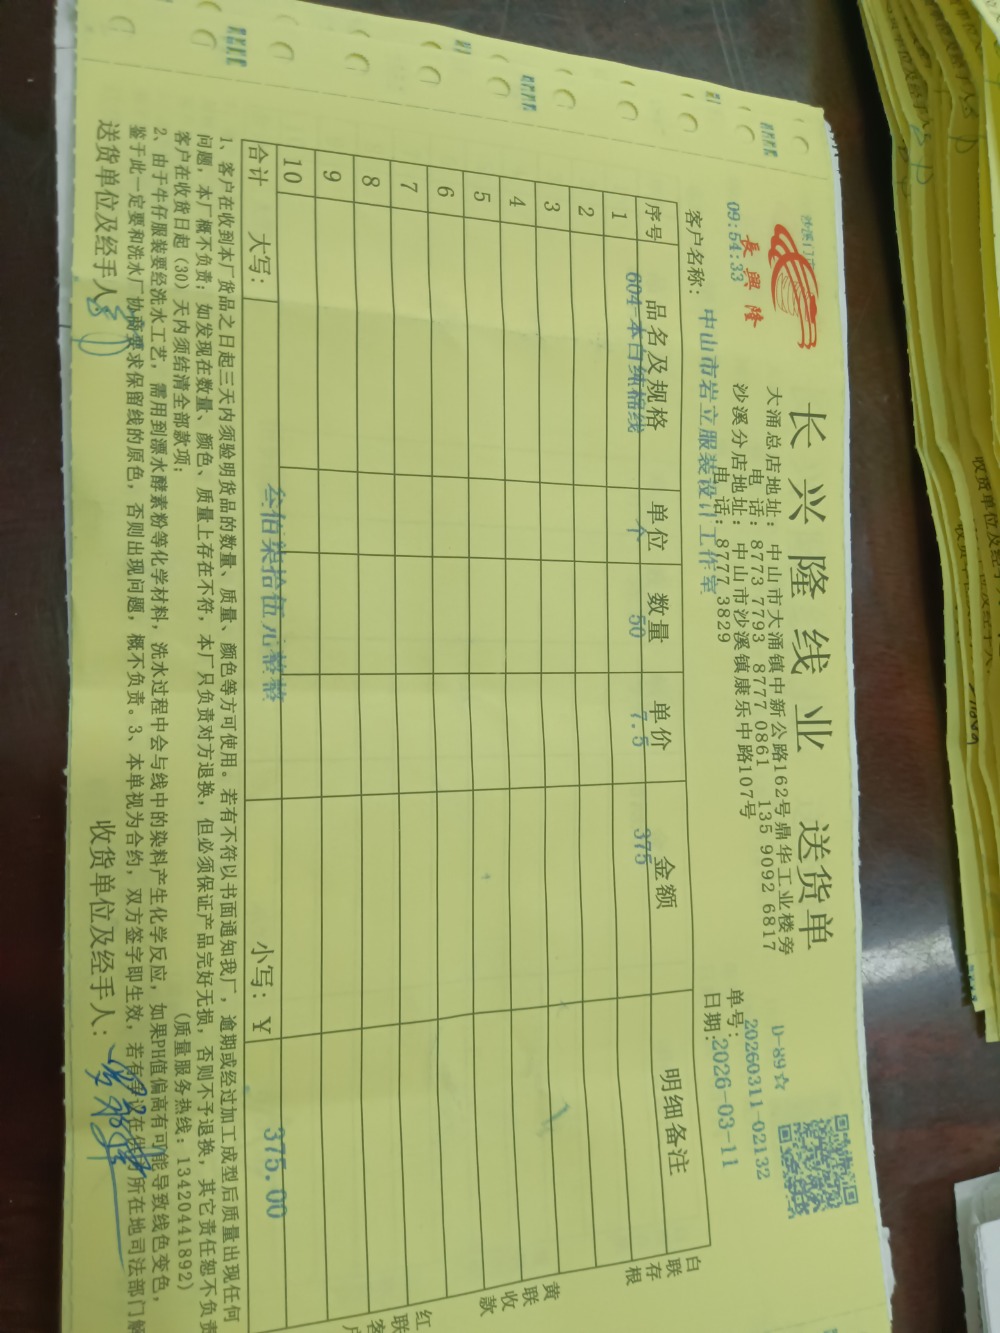 沙溪门市
長興隆
09:54:33
长兴隆线业 送货单
大涌总店地址：中山市大涌镇中新公路162号鼎华工业楼旁
电 话：8773 7793 8777 0861 135 9092 6817
沙溪分店地址：中山市沙溪镇康乐中路107号
电 话：8777 3829
D-89☆
单号：20260311-02132
日期：2026-03-11
客户名称：中山市岩立服装设计工作室
序号 品名及规格 单位 数量 单价 金额 明细备注
1 604-本白纯棉线 个 50 7.5 375
2
3
4
5
6
7
8
9
10
合计 大写： 叁佰柒拾伍元整整 小写：￥ 375.00
白联存根
黄联收款
红联客户
1、客户在收到本厂货品之日起三天内须验明货品的数量、质量、颜色等方可使用。若有不符以书面通知我厂，逾期或经过加工成型后质量出现任何
问题，本厂概不负责；如发现在数量、颜色、质量上存在不符，本厂只负责对方退换，但必须保证产品完好无损，否则不予退换，其它责任恕不负责
客户在收货日起（30）天内须结清全部款项； （质量服务热线：13420441892）
2、由于牛仔服装要经洗水工艺，需用到漂水酵素粉等化学材料，洗水过程中会与线中的染料产生化学反应，如果PH值偏高有可能导致线色变色，
鉴于此一定要和洗水厂协商要求保留线的原色，否则出现问题，概不负责。3、本单视为合约，双方签字即生效，若有争议在供方所在地司法部门解
送货单位及经手人： 收货单位及经手人：